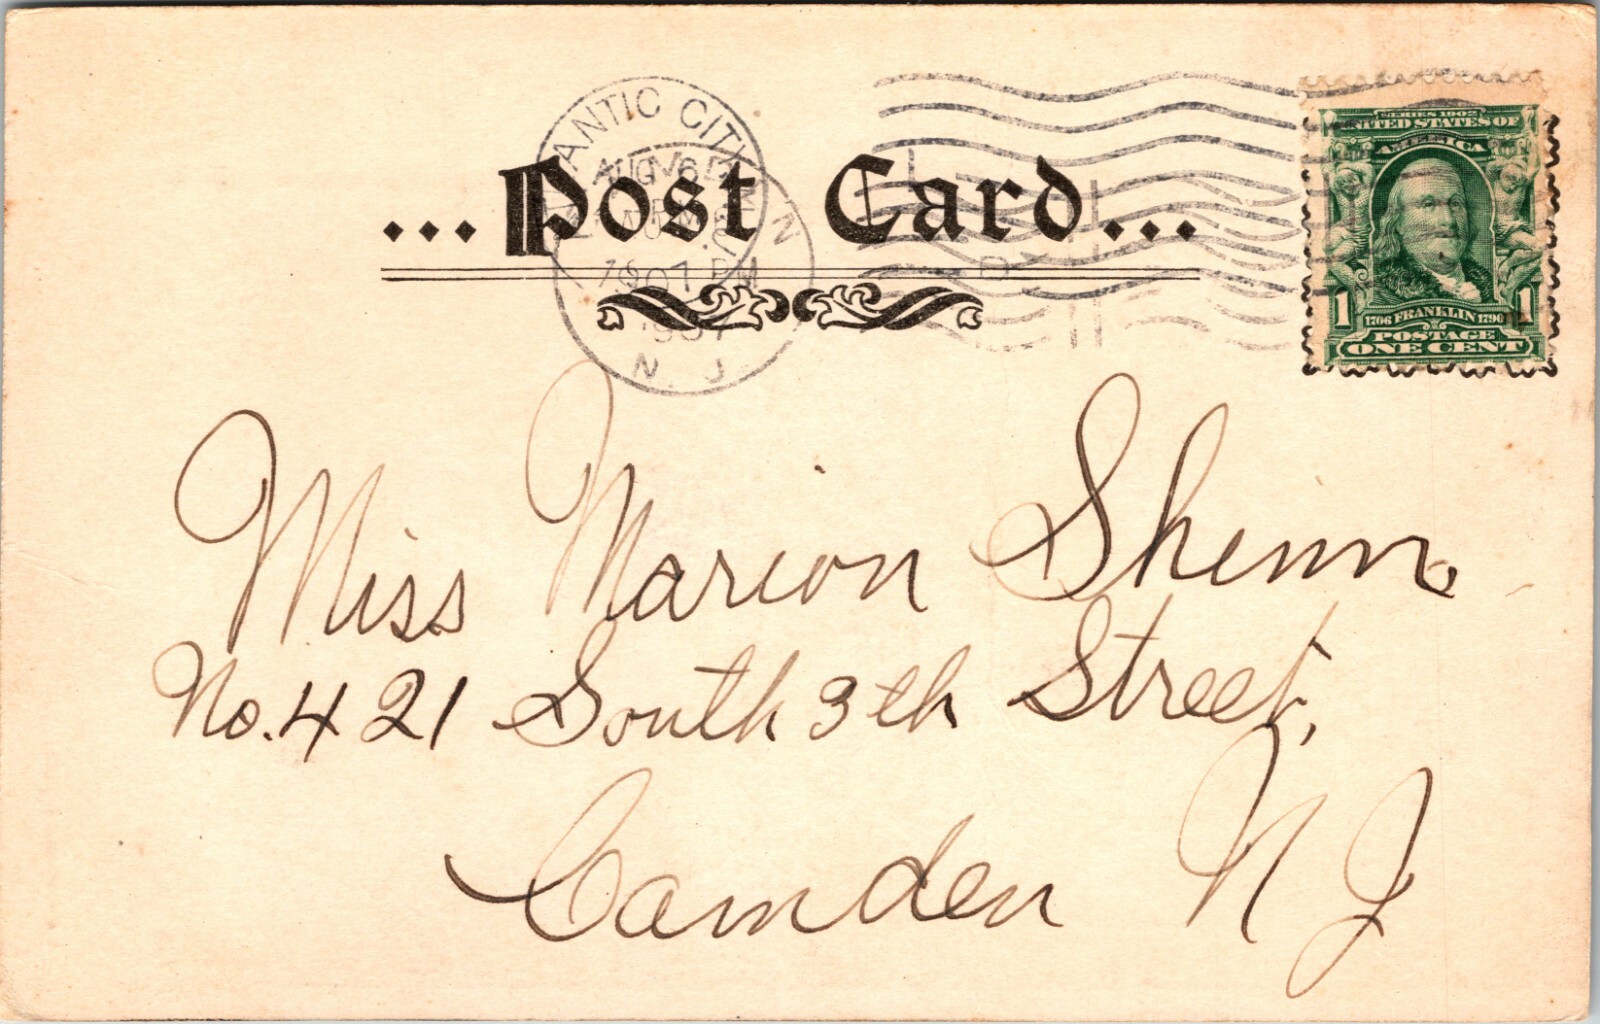 ANTIC CITY
AUG 6
1907 PM
1907
N. J.
...Post Card...
SERIES 1902
UNITED STATES OF
AMERICA
1 1
1706 FRANKLIN 1790
POSTAGE
ONE CENT
Miss Marion Shinn
No. 421 South 3th Street,
Camden N J